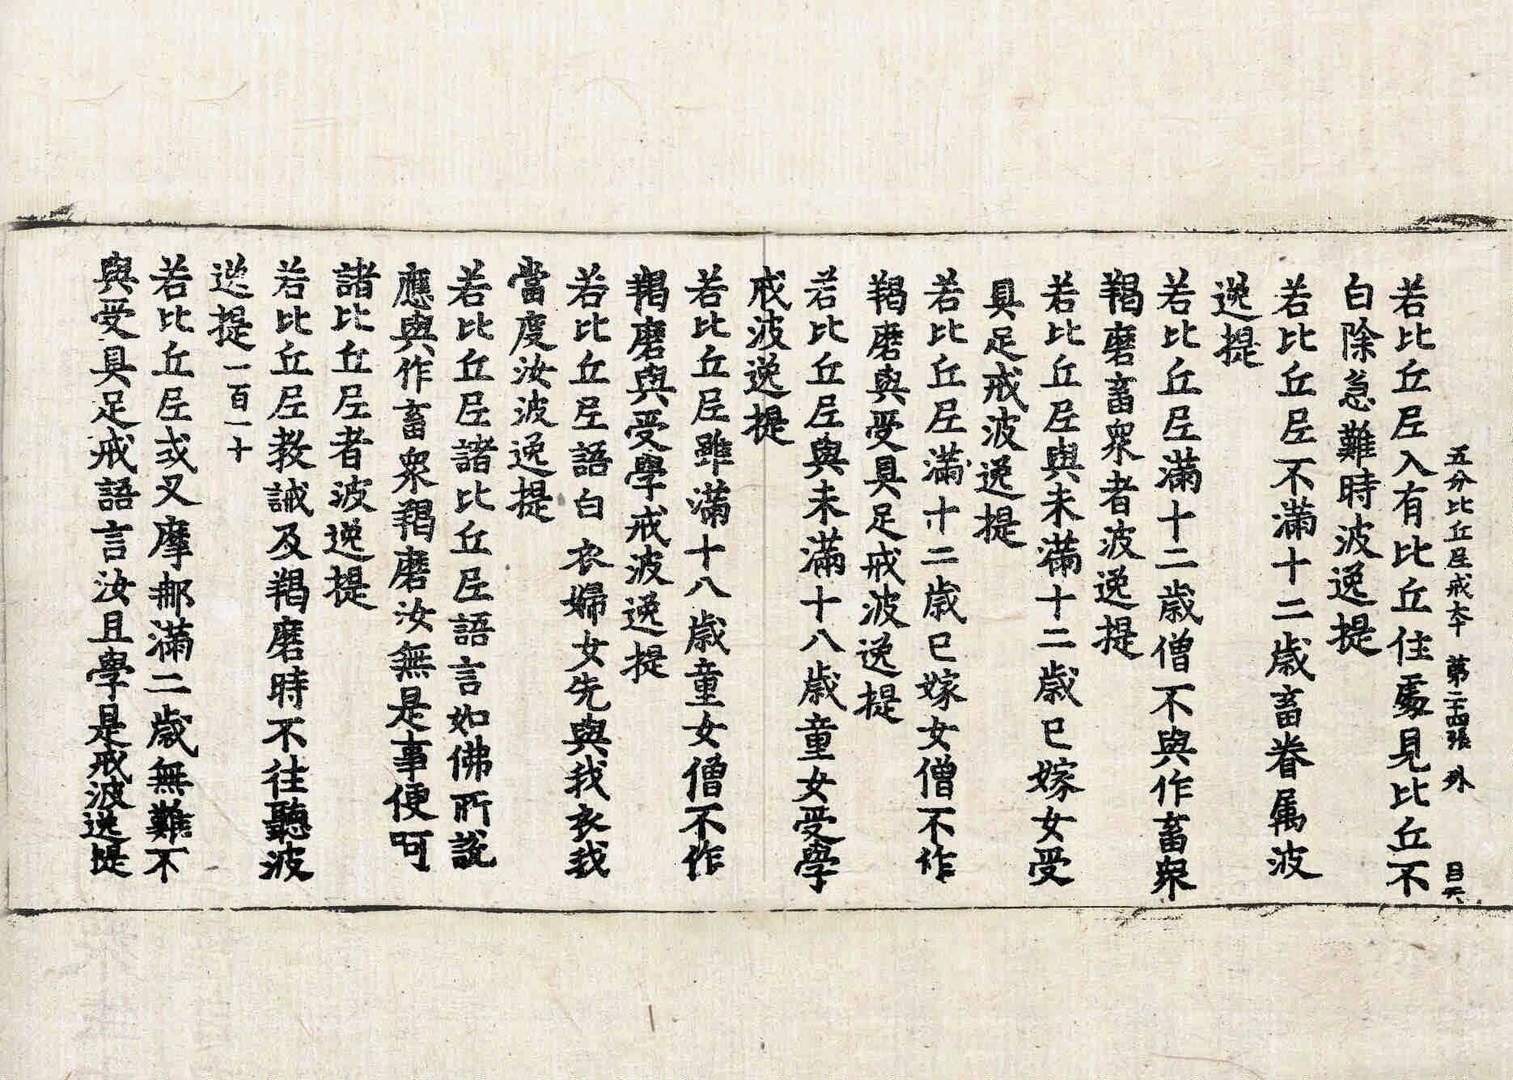 五分比丘尼戒本　第二十四張　外
若比丘尼入有比丘住處見比丘不
白除急難時波逸提
若比丘尼不滿十二歲畜眷属波
逸提
若比丘尼滿十二歲僧不與作畜衆
羯磨畜衆者波逸提
若比丘尼與未滿十二歲已嫁女受
具足戒波逸提
若比丘尼滿十二歲已嫁女僧不作
羯磨與受具足戒波逸提
若比丘尼與未滿十八歲童女受學
戒波逸提
若比丘尼雖滿十八歲童女僧不作
羯磨與受學戒波逸提
若比丘尼語白衣婦女先與我衣我
當度汝波逸提
若比丘尼諸比丘尼語言如佛所說
應與作畜衆羯磨汝無是事便呵
諸比丘尼者波逸提
若比丘尼教誡及羯磨時不往聽波
逸提一百一十
若比丘尼式叉摩那滿二歲無難不
與受具足戒語言汝且學是戒波逸提